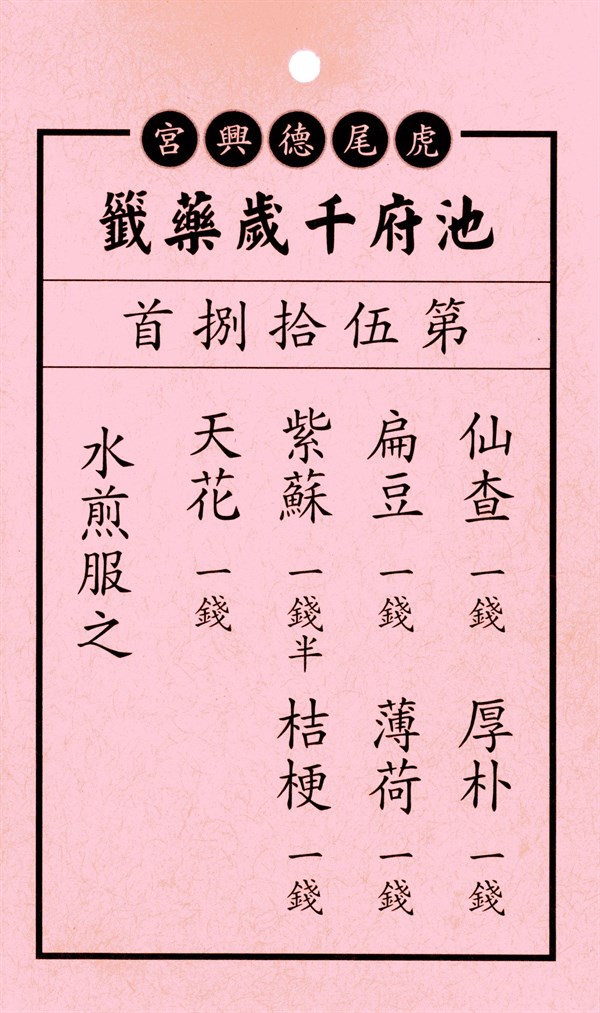 虎尾德興宮
池府千歲藥籤
第伍拾捌首
仙查一錢 厚朴一錢
扁豆一錢 薄荷一錢
紫蘇一錢半 桔梗一錢
天花一錢
水煎服之